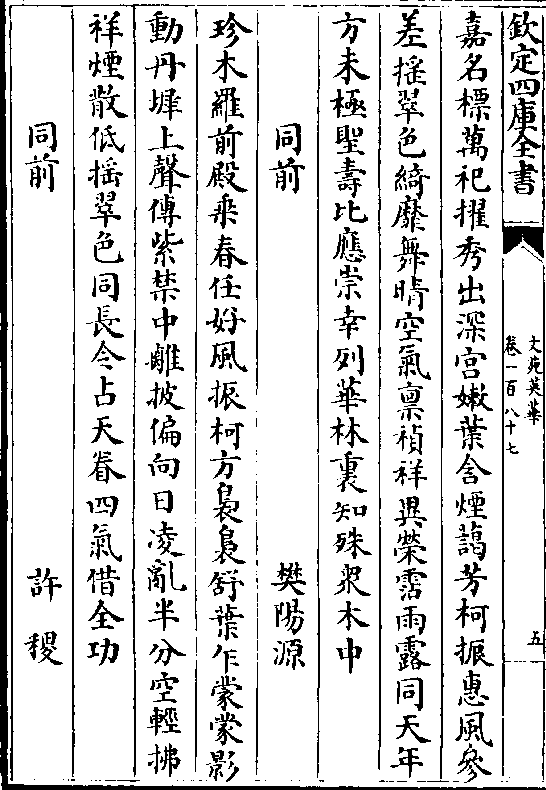 欽定四庫全書
文苑英華
卷一百八十七
五
嘉名標萬祀擢秀出深宫嫩葉含煙藹芳柯振惠風參
差摇翠色綺靡舞晴空氣禀禎祥異榮霑雨露同天年
方未極聖壽比應崇幸列華林裏知殊衆木中
同前
樊陽源
珍木羅前殿乗春任好風振柯方裊裊舒葉乍蒙蒙影
動丹墀上聲傳紫禁中離披偏向日凌亂半分空輕拂
祥煙散低摇翠色同長令占天眷四氣借全功
同前
許稷